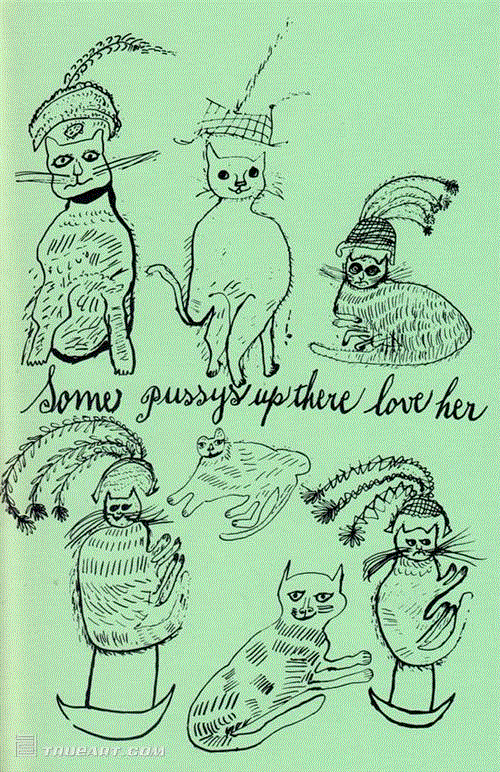 Some pussys up there love her
TRUEART.COM